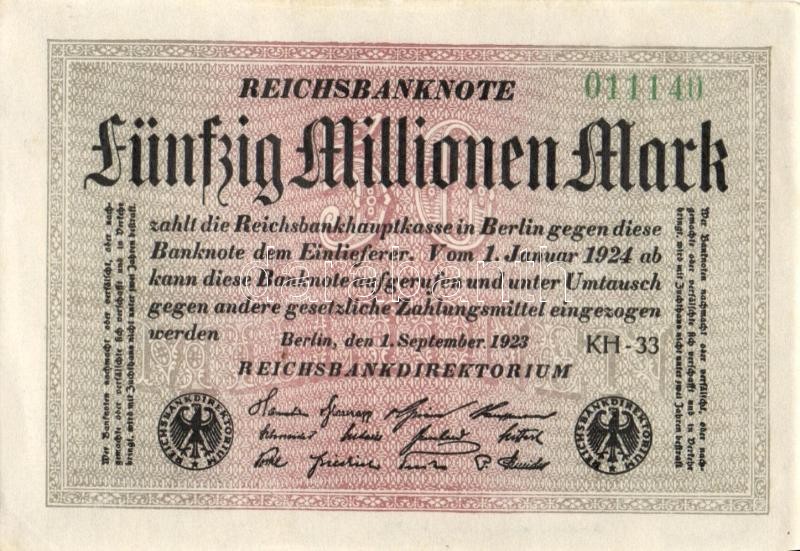 REICHSBANKNOTE
011140
Fünfzig Millionen Mark
50
zahlt die Reichsbankhauptkasse in Berlin gegen diese
Banknote dem Einlieferer. Vom 1. Januar 1924 ab
kann diese Banknote aufgerufen und unter Umtausch
gegen andere gesetzliche Zahlungsmittel eingezogen
werden
Berlin, den 1. September 1923
KH-33
REICHSBANKDIREKTORIUM
Wer Banknoten nachmacht oder verfälscht, oder nach-
gemachte oder verfälschte sich verschafft und in Verkehr
bringt, wird mit Zuchthaus nicht unter zwei Jahren bestraft.
Wer Banknoten nachmacht oder verfälscht, oder nach-
gemachte oder verfälschte sich verschafft und in Verkehr
bringt, wird mit Zuchthaus nicht unter zwei Jahren bestraft
REICHSBANKDIREKTORIUM
REICHSBANKDIREKTORIUM
darabanth